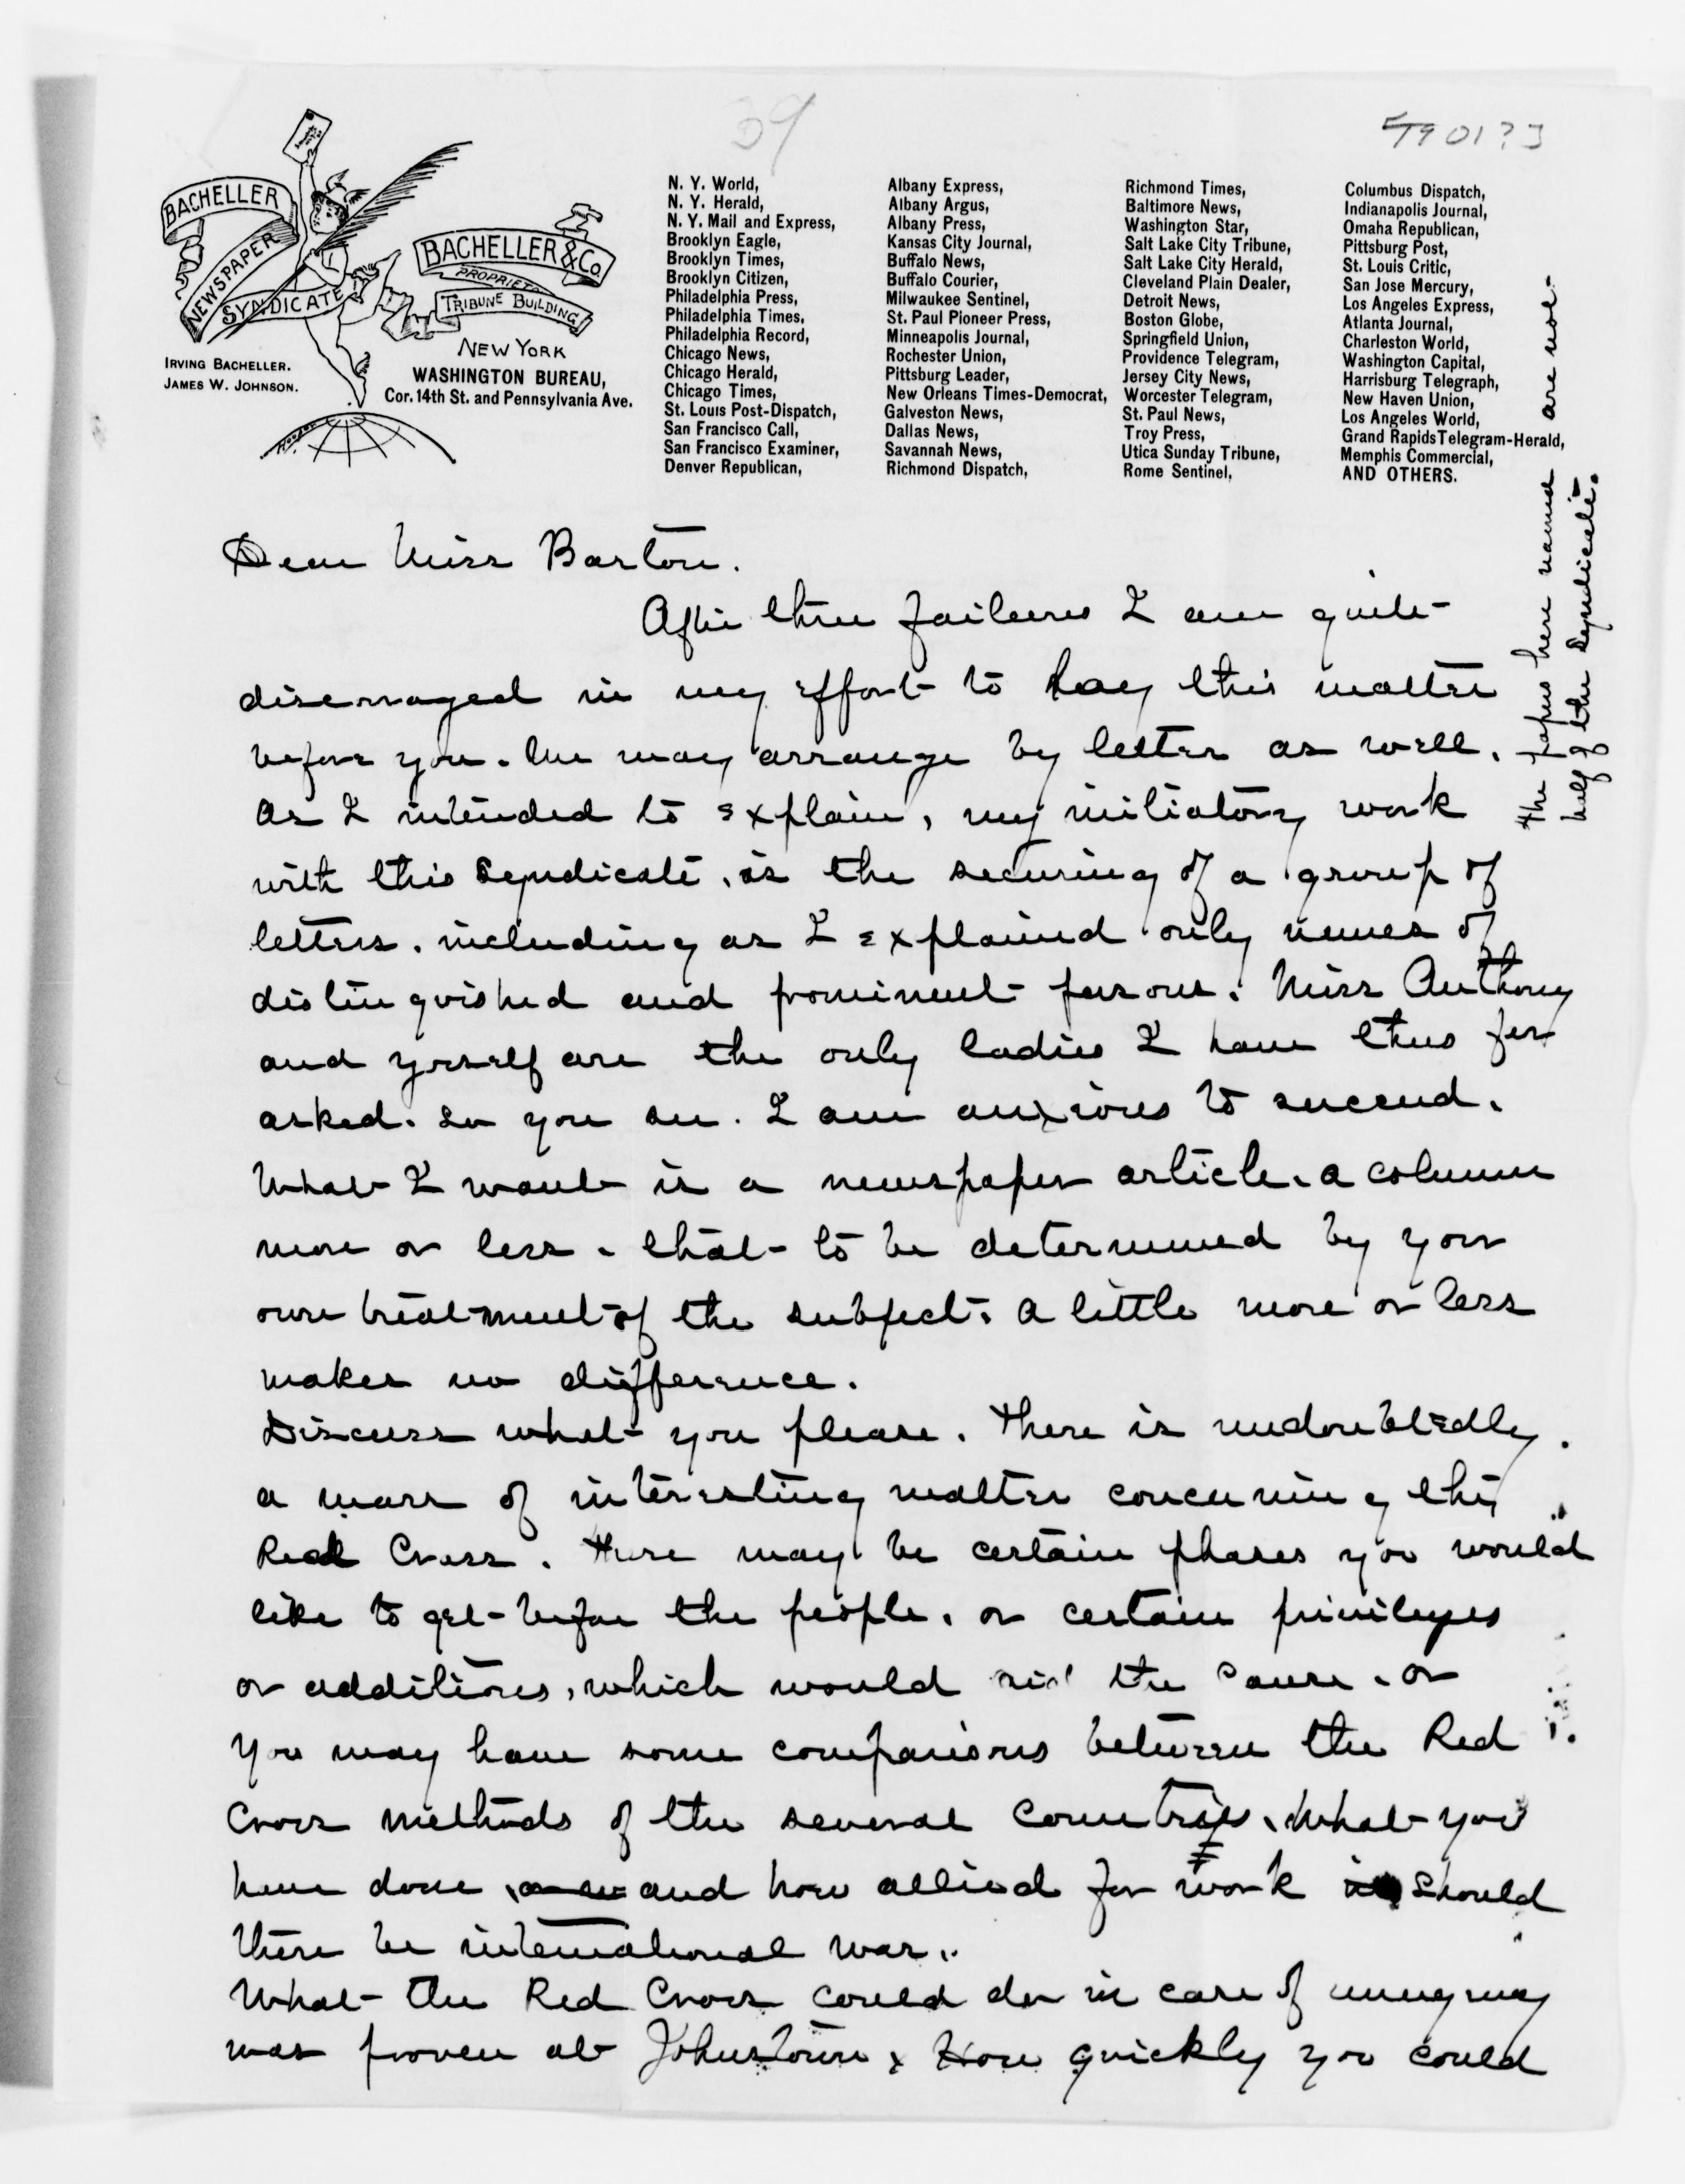 39
[1901?]
BACHELLER
NEWSPAPER
SYNDICATE
BACHELLER & Co.
PROPRIET
TRIBUNE BUILDING
NEW YORK
IRVING BACHELLER.
JAMES W. JOHNSON.
WASHINGTON BUREAU,
Cor. 14th St. and Pennsylvania Ave.
N. Y. World,
N. Y. Herald,
N. Y. Mail and Express,
Brooklyn Eagle,
Brooklyn Times,
Brooklyn Citizen,
Philadelphia Press,
Philadelphia Times,
Philadelphia Record,
Chicago News,
Chicago Herald,
Chicago Times,
St. Louis Post-Dispatch,
San Francisco Call,
San Francisco Examiner,
Denver Republican,
Albany Express,
Albany Argus,
Albany Press,
Kansas City Journal,
Buffalo News,
Buffalo Courier,
Milwaukee Sentinel,
St. Paul Pioneer Press,
Minneapolis Journal,
Rochester Union,
Pittsburg Leader,
New Orleans Times-Democrat,
Galveston News,
Dallas News,
Savannah News,
Richmond Dispatch,
Richmond Times,
Baltimore News,
Washington Star,
Salt Lake City Tribune,
Salt Lake City Herald,
Cleveland Plain Dealer,
Detroit News,
Boston Globe,
Springfield Union,
Providence Telegram,
Jersey City News,
Worcester Telegram,
St. Paul News,
Troy Press,
Utica Sunday Tribune,
Rome Sentinel,
Columbus Dispatch,
Indianapolis Journal,
Omaha Republican,
Pittsburg Post,
St. Louis Critic,
San Jose Mercury,
Los Angeles Express,
Atlanta Journal,
Charleston World,
Washington Capital,
Harrisburg Telegraph,
New Haven Union,
Los Angeles World,
Grand Rapids Telegram-Herald,
Memphis Commercial,
AND OTHERS.
The papers here named are not
half of the Syndicate.
Dear Miss Barton.
After three failures I am quite
discouraged in my effort to lay this matter
before you. We may arrange by letter as well.
As I intended to explain, my initiatory work
with this Syndicate, is the securing of a group of
letters, including as I explained only names of
distinguished and prominent persons. Miss Anthony
and yourself are the only ladies I have thus far
asked. So you see. I am anxious to succeed.
What I want is a newspaper article, a column
more or less - that to be determined by your
own treatment of the subject. A little more or less
makes no difference.
Discuss what you please. There is undoubtedly
a mass of interesting matter concerning the
Red Cross. There may be certain phases you would
like to get before the people, or certain privileges
or additions, which would aid the cause. or
you may have some comparisons between the Red
Cross methods of the several countries, What you
have done and how allied for work should
there be international war.
What the Red Cross could do in case of emergency
was proven at Johnstown & How quickly you could